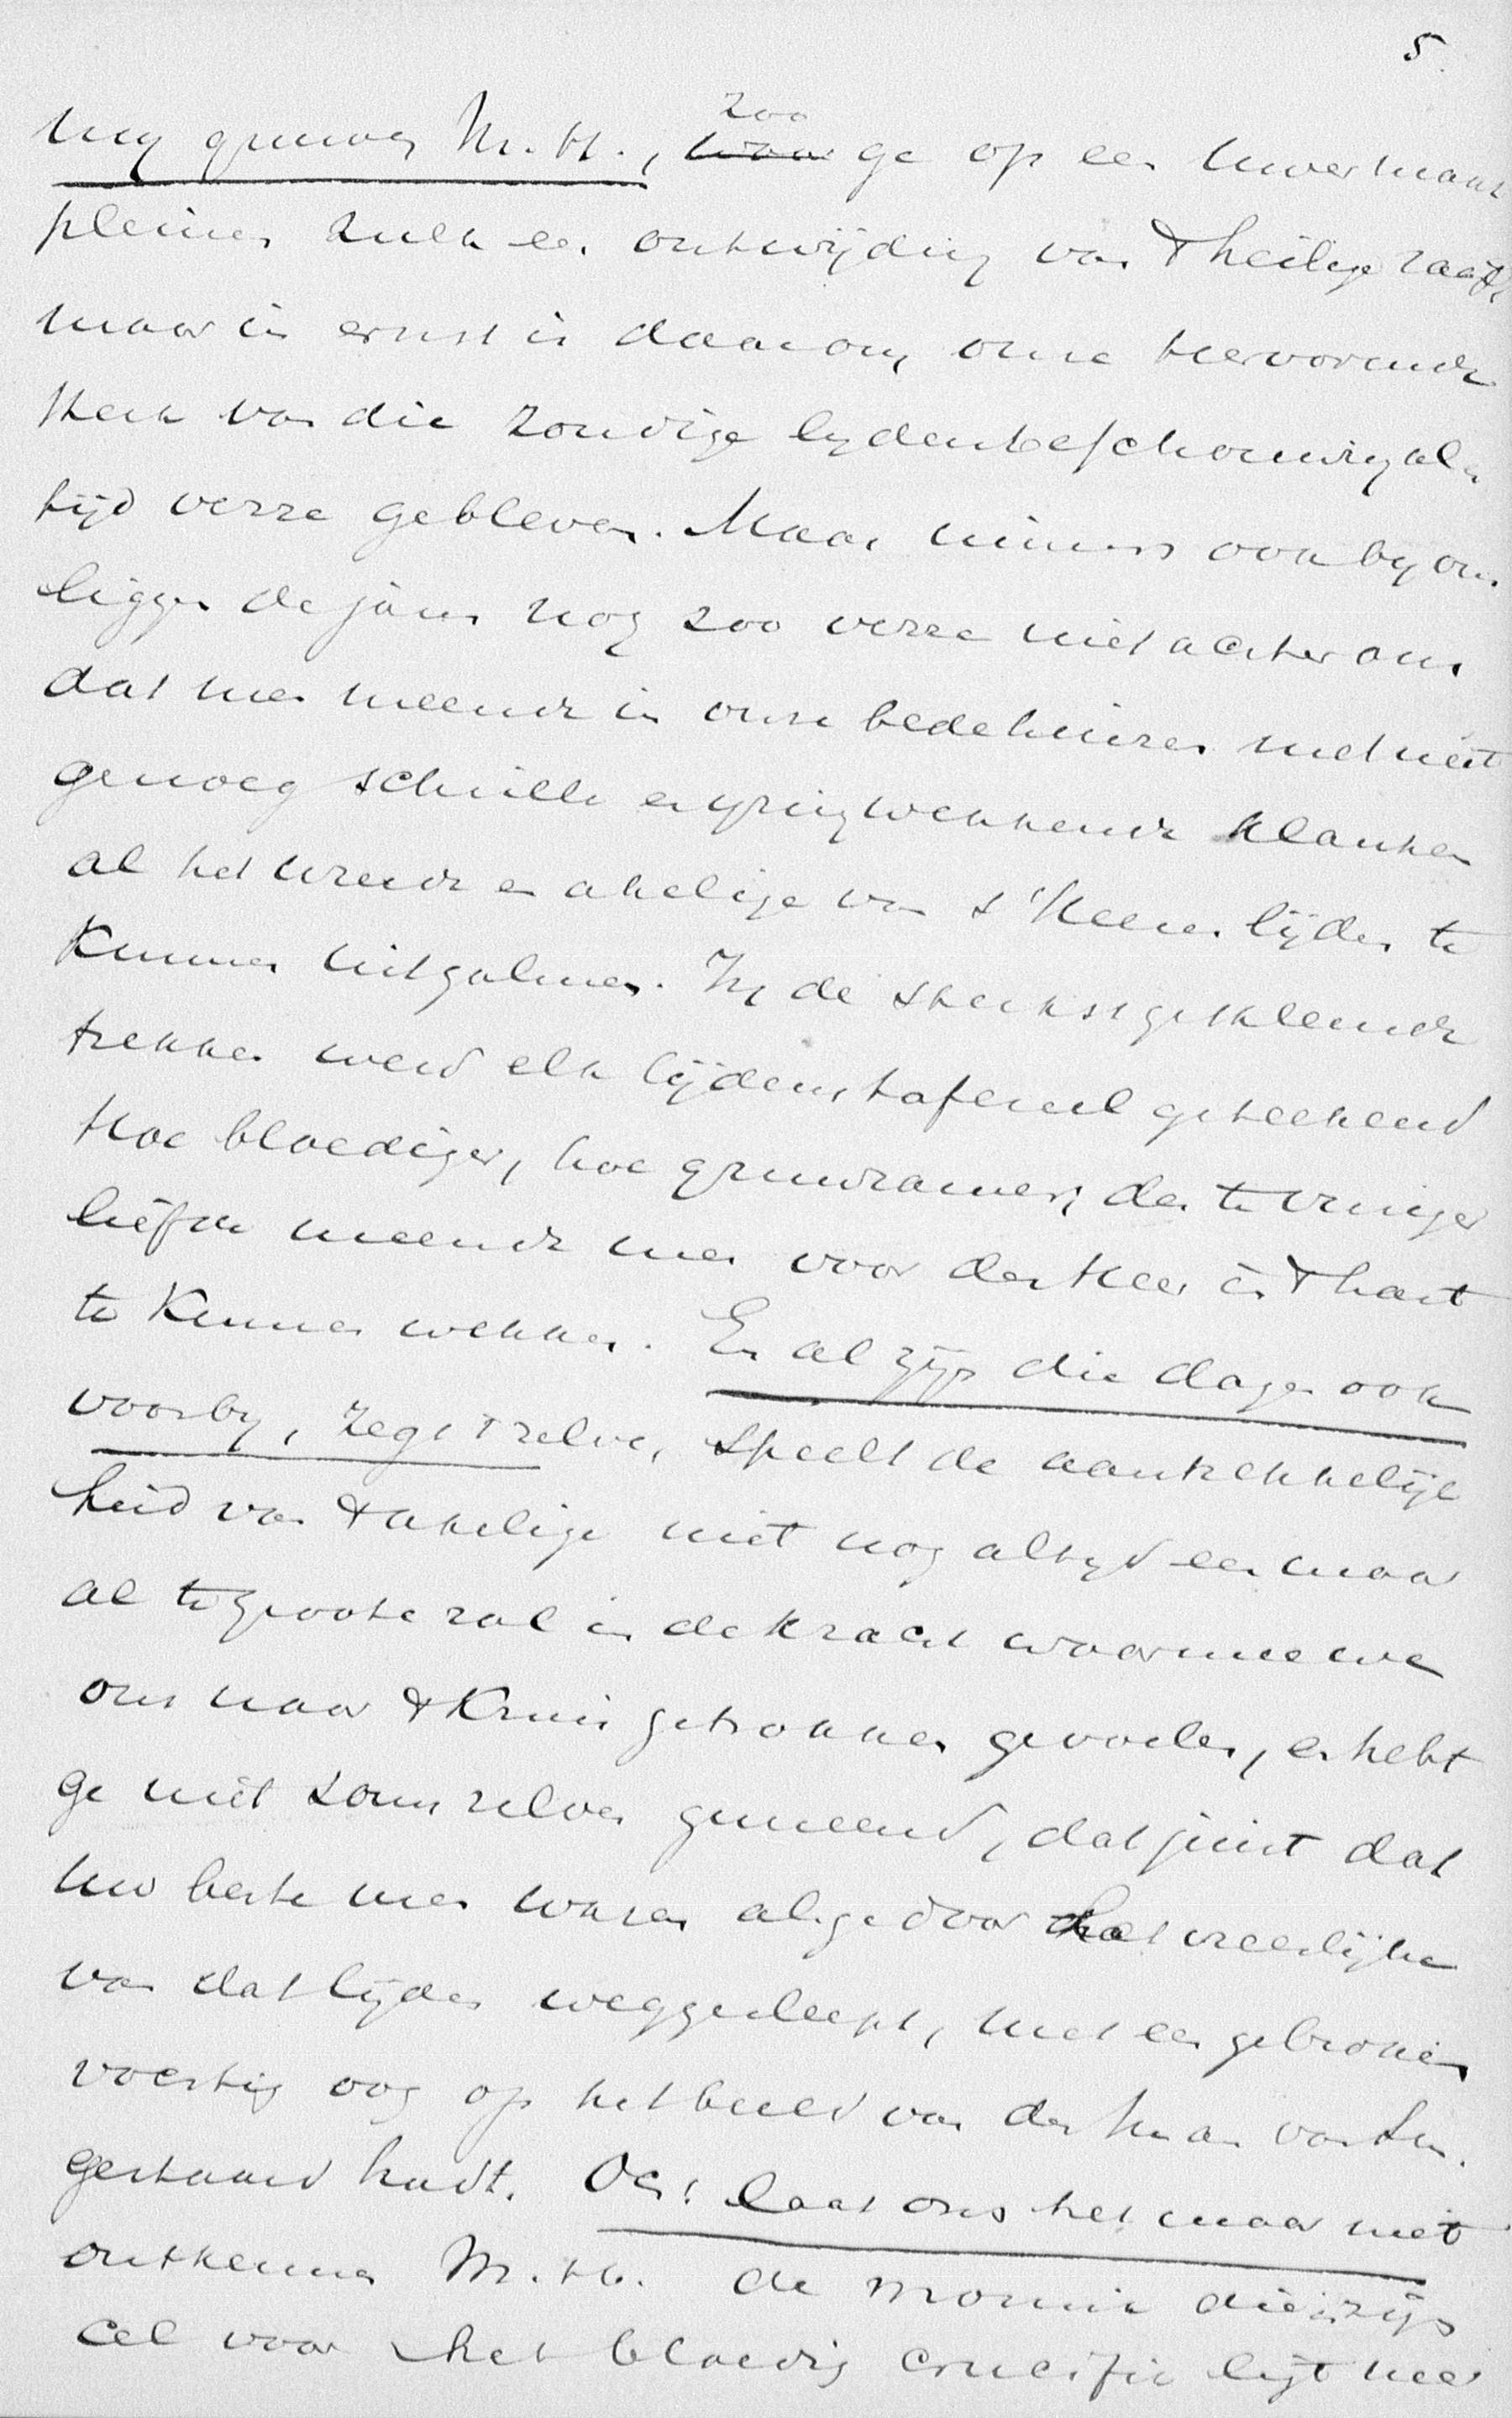 5.
zoo
Uwy gruwen M.H., waar ge op een Unermaar
pleinen zulk een ontwijding van 't heilige zaagt,
maar in ernst is daarom onze hervormde
Kerk van die zondige lydensbeschouwing al
tijd verre gebleven. Maar immers ook by ons
liggen de jaren nog zoo verre niet achter ons
dat men meende in onze bedehuizen met niet
genoeg schrille en ijzingwekkende klanken
al het wreede en akelige van 's Heeren lijden te
kunnen uitgalmen. In de sterkst gekleurde
trekken werd elk lijdenstafereel geteekend
Hoe bloediger, hoe gruwzamer, des te vuriger
liefde meende men voor den Heer in 't hart
te kunnen wekken. En al zijn die dagen ook
voorby, zegt 't zelve, speelt de aantrekkelijk
heid van 't akelige niet nog altyd een maar
al te groote rol in de kracht waarmee we
ons naar 't Kruis getrokken gevoelen, en hebt
ge niet soms zelven gemeend, dat juist dat
uw beste uren waren als ge door het vreeslijke
van dat lijden weggesleept, met een gebroken
vochtig oog op het beeld van den Man van Sm.
gestaard hadt. Och! laat ons het maar niet
ontkennen M.H. de monnik die in zijn
cel voor het bloedig crucifix ligt neer